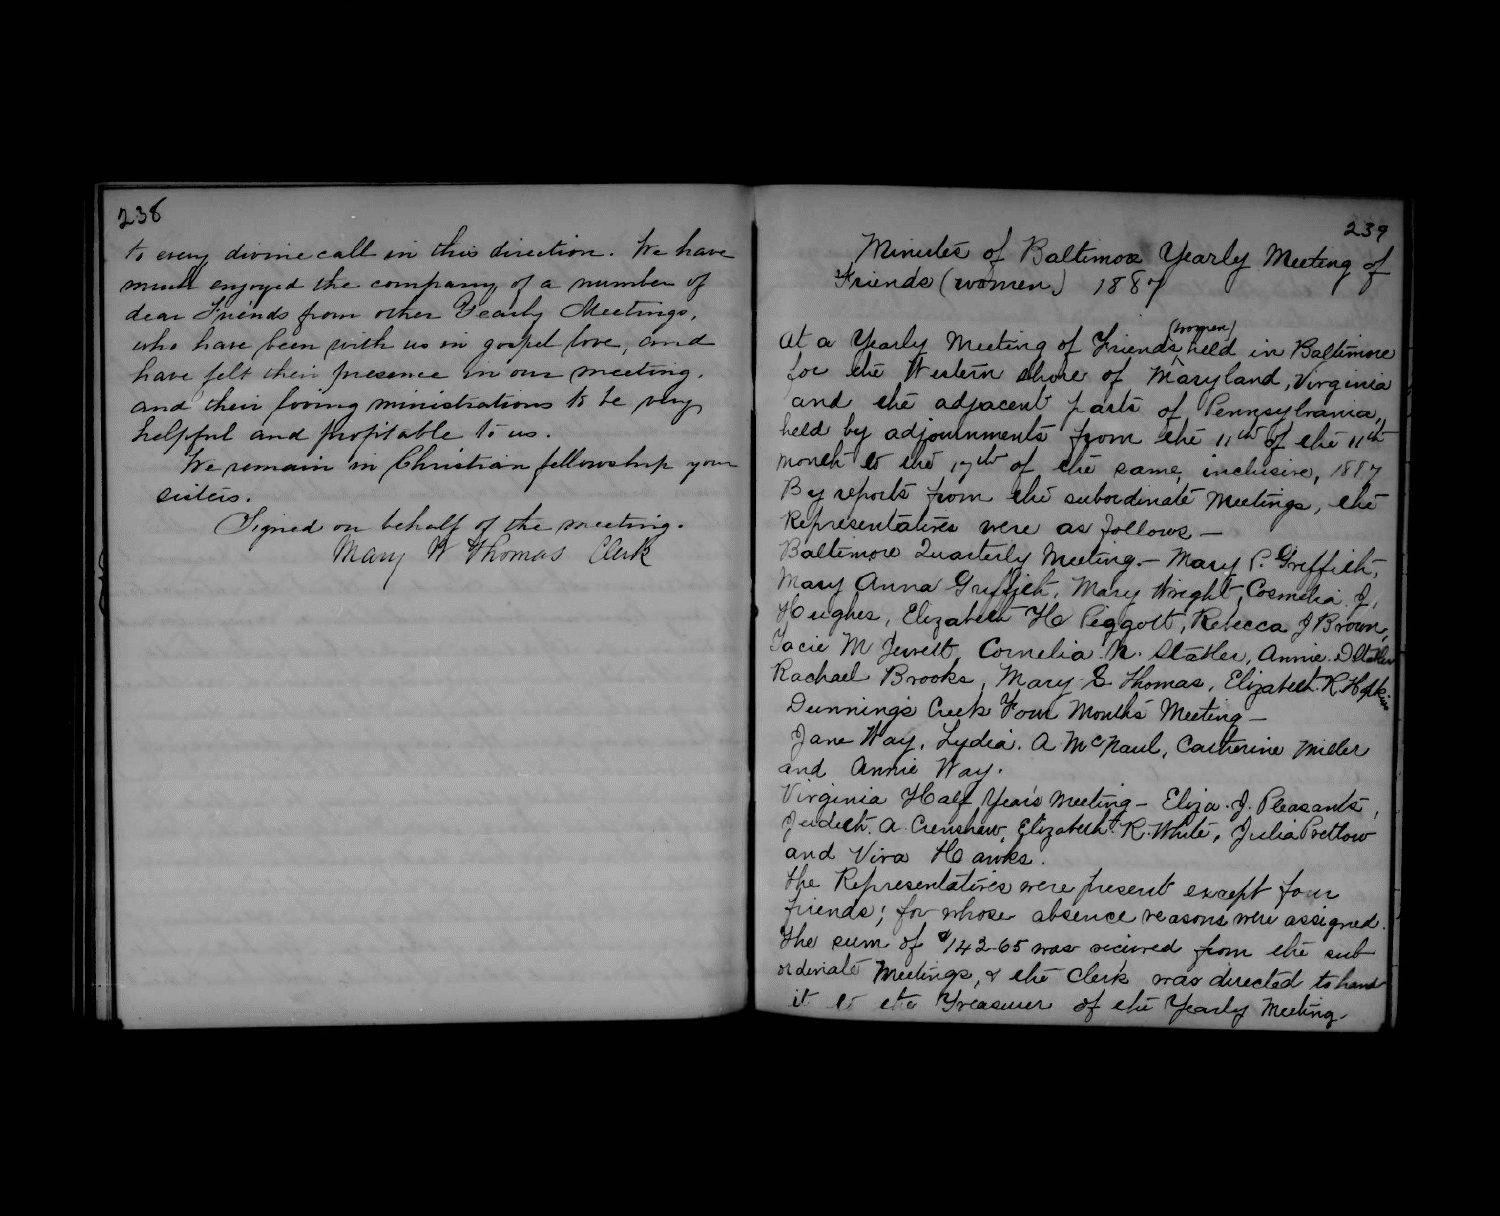 238
to every divine call in this direction. We have
much enjoyed the company of a number of
dear Friends from other Yearly Meetings,
who have been with us in gospel love, and
have felt their presence in our meeting,
and their loving ministrations to be very
helpful and profitable to us.
We remain in Christian fellowship your
sisters.
Signed on behalf of the meeting.
Mary W Thomas Clerk
239
Minutes of Baltimore Yearly Meeting of
Friends (women) 1887
At a Yearly Meeting of Friends (women) held in Baltimore
for the Western shore of Maryland, Virginia
and the adjacent parts of Pennsylvania,
held by adjournments from the 11th of the 11th
month to the 17th of the same, inclusive, 1887
By reports from the subordinate Meetings, the
Representatives were as follows —
Baltimore Quarterly Meeting. — Mary P. Griffith,
Mary Anna Griffith, Mary Wright, Cosmelia J.
Hughes, Elizabeth H Piggott, Rebecca J Brown,
Tacie M Jewett, Cornelia N. Statler, Annie D Statler
Rachael Brooks, Mary S Thomas, Elizabeth R Hopkins
Dunning's Creek Four Months Meeting —
Jane Way, Lydia. A McNaul, Catherine Miller
and Annie Way.
Virginia Half Year's Meeting — Eliza. J. Pleasants,
Judith. A. Crenshaw, Elizabeth R. White, Julia Pretlow
and Vira Hawks.
The Representatives were present except four
friends; for whose absence reasons were assigned.
The sum of $142.65 was received from the sub
ordinate Meetings, & the Clerk was directed to hand
it to the Treasurer of the Yearly Meeting.